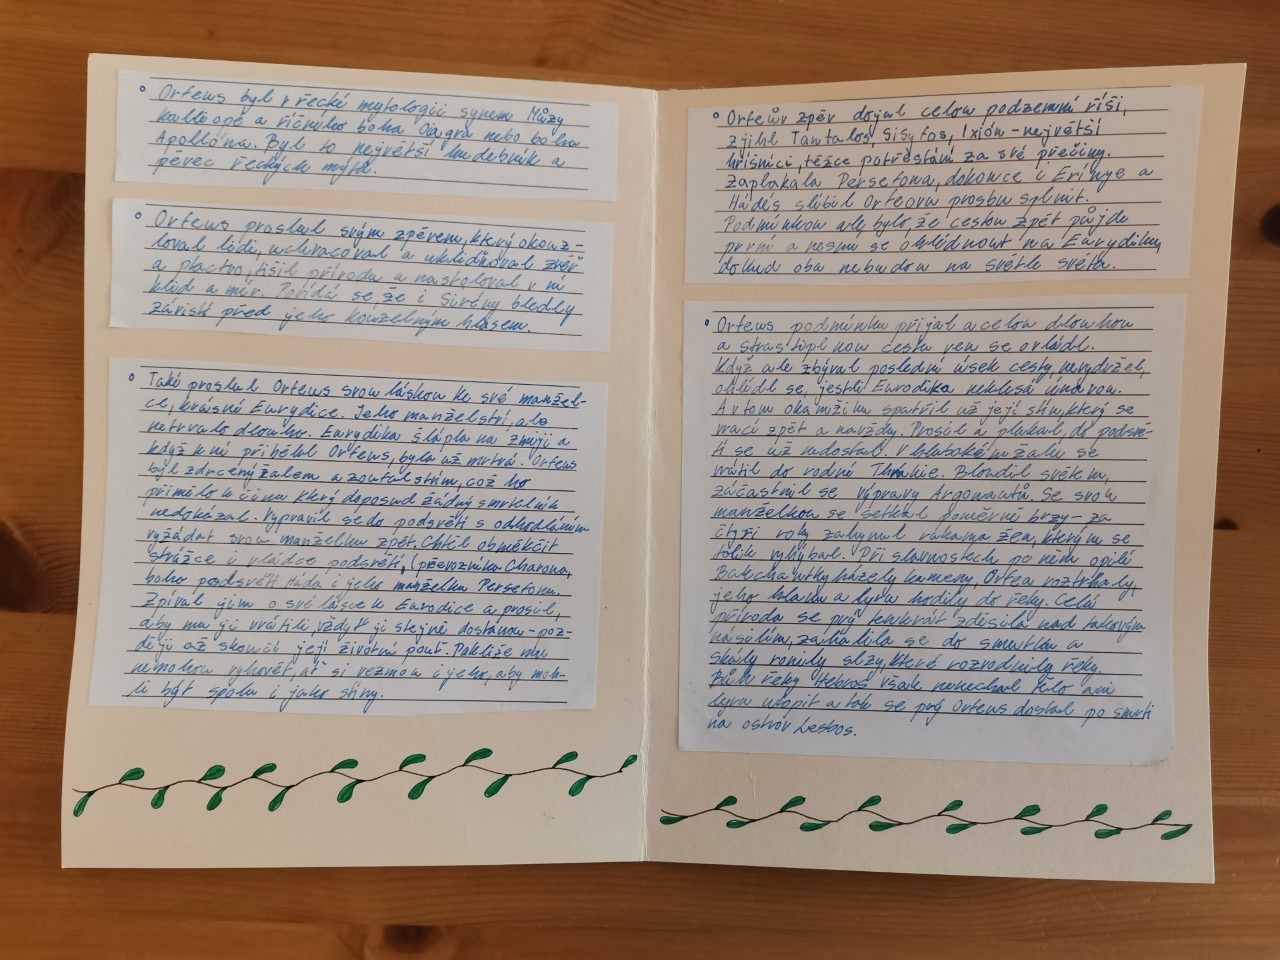 Orfeus byl v řecké mytologii synem Múzy
Kalliopé a říčního boha Oagra nebo boha
Apollóna. Byl to největší hudebník a
pěvec řeckých mýtů.
Orfeus proslul svým zpěvem, který okouz-
loval lidi, uchvacoval a uklidňoval zvěř
a ptactvo, tišil přírodu a nastoloval v ní
klid a mír. Povídá se, že i Sirény bledly
závistí před jeho kouzelným hlasem.
Také proslul Orfeus svou láskou ke své manžel-
ce, krásné Eurydice. Jeho manželství, ale
netrvalo dlouho. Eurydika šlápla na zmiji a
když k ní přiběhl Orfeus, byla už mrtvá. Orfeus
byl zdrcený žalem a zoufalstvím, což ho
přimělo k činu který doposud žádný smrtelník
nedokázal. Vypravil se do podsvětí s odhodláním
vyžádat svou manželku zpět. Chtěl obměkčit
strážce i vládce podsvětí, (převozníka Charona,
boha podsvětí Háda i jeho manželku Persefonu.
Zpíval jim o své lásce k Eurodice a prosil,
aby mu ji vrátili, vždyť ji stejně dostanou - poz-
ději až skončí její životní pouť. Pakliže mu
nemohou vyhovět, ať si vezmou i jeho, aby moh-
li být spolu i jako stíny.
Orfeův zpěv dojal celou podzemní říši,
zjihl Tantalos, Sisyfos, Ixión - největší
hříšníci, těžce potrestáni za své přečiny.
Zaplakala Persefona, dokonce i Erínye a
Hádés slíbil Orfeovu prosbu splnit.
Podmínkou ale bylo, že cestou zpět půjde
první a nesmí se ohlédnout na Eurydiku,
dokud oba nebudou na světle světa.
Orfeus podmínku přijal a celou dlouhou
a strastiplnou cestu ven se ovládl.
Když ale zbýval poslední úsek cesty, nevydržel,
ohlédl se, jestli Eurodika neklesá únavou.
A v tom okamžiku spatřil už její stín, který se
vrací zpět a navždy. Prosil a plakal, do podsvě-
tí se už nedostal. V hlubokém žalu se
vrátil do rodné Thrákie. Bloudil světem,
záčastnil se výpravy Argonautů. Se svou
manželkou se setkal poměrně brzy - za
čtyři roky zahynul rukama žen, kterým se
tolik vyhýbal. Při slavnostech, po něm opilé
Bakchantky házely kameny, Orfea roztrhaly,
jeho hlavu a lyru hodily do řeky. Celá
příroda se prý tenkrát zděsila nad takovým
násilím, zahalila se do smutku a
skály ronily slzy, které rozvodnily řeky.
Bůh řeky Hebros však nenechal tělo ani
lyru utopit a tak se prý Orfeus dostal po smrti
na ostrov Lesbos.